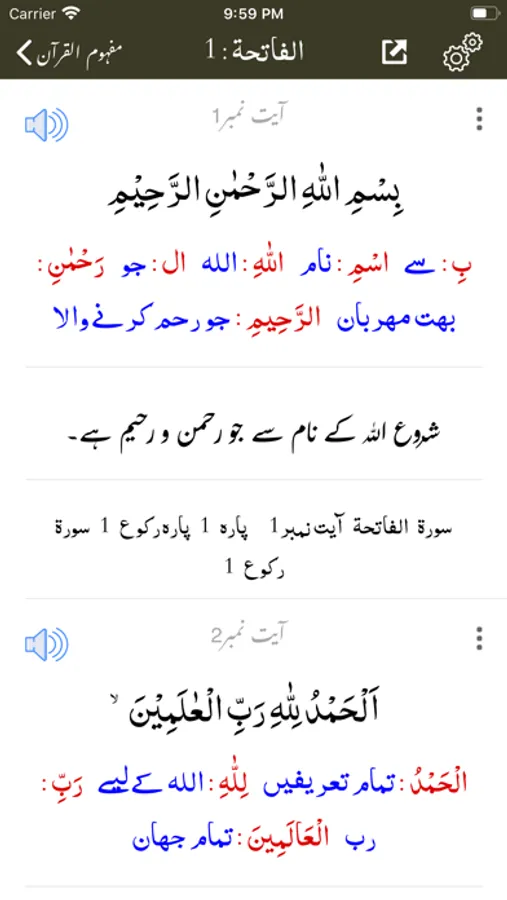 Carrier 9:59 PM
مفہوم القرآن الفاتحة : 1
آیت نمبر1
بِسْمِ اللّٰهِ الرَّحْمٰنِ الرَّحِيْمِ
بِ: سے اسْمِ: نام اللّٰهِ: الله ال: جو رَحْمٰنِ:
بہت مہربان الرَّحِيمِ: جو رحم کرنے والا
شروع اللہ کے نام سے جو رحمن و رحیم ہے۔
سورۃ الفاتحة آیت نمبر1 پارہ 1 پارہ رکوع 1 سورۃ
رکوع 1
آیت نمبر2
اَلْحَمْدُ لِلّٰهِ رَبِّ الْعٰلَمِيْنَ ۙ
الْحَمْدُ: تمام تعریفیں لِلّٰهِ: الله کے لیے رَبِّ:
رب الْعَالَمِينَ: تمام جہان